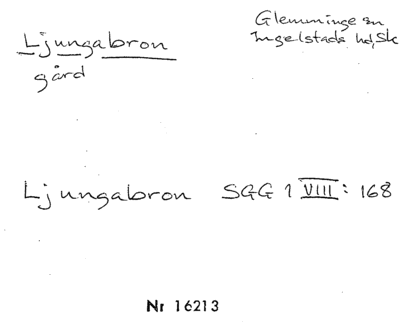 Ljungabron
gård
Glemminge sn
Ingelstads hd, Sk
Ljungabron SGG 1 VIII: 168
Nr 16213